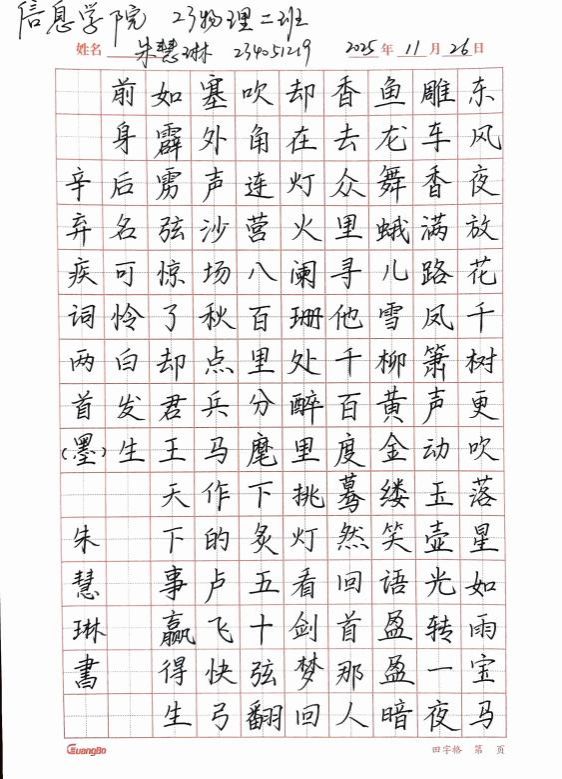 信息学院 23物理二班
姓名 朱慧琳 234051219 2025年11月26日
东风夜放花千树更吹落星如雨宝马
雕车香满路凤箫声动玉壶光转一夜
鱼龙舞蛾儿雪柳黄金缕笑语盈盈暗
香去众里寻他千百度蓦然回首那人
却在灯火阑珊处醉里挑灯看剑梦回
吹角连营八百里分麾下炙五十弦翻
塞外声沙场秋点兵马作的卢飞快弓
如霹雳弦惊了却君王天下事赢得生
前身后名可怜白发生
辛弃疾词两首(墨) 朱慧琳書
GuangBo 四字格 第 页